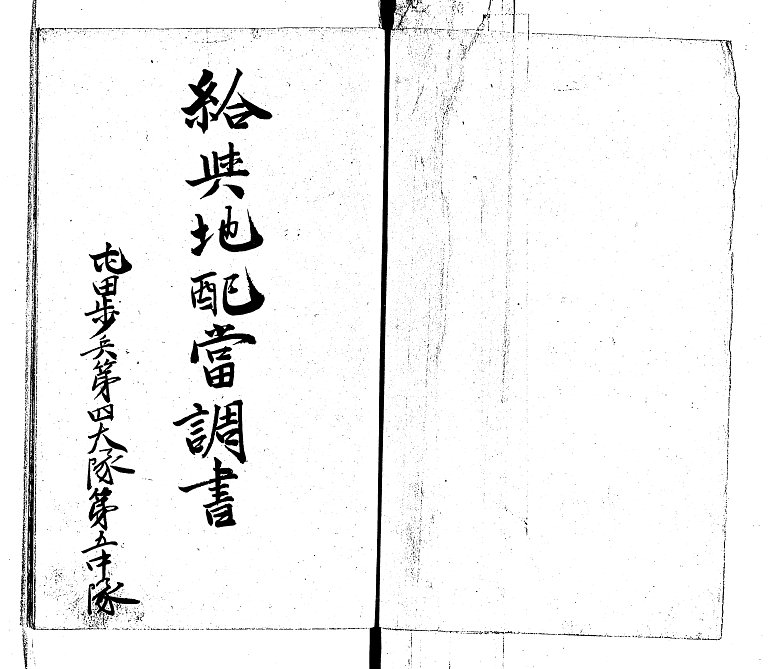 給與地配當調書
屯田步兵第四大隊第五中隊